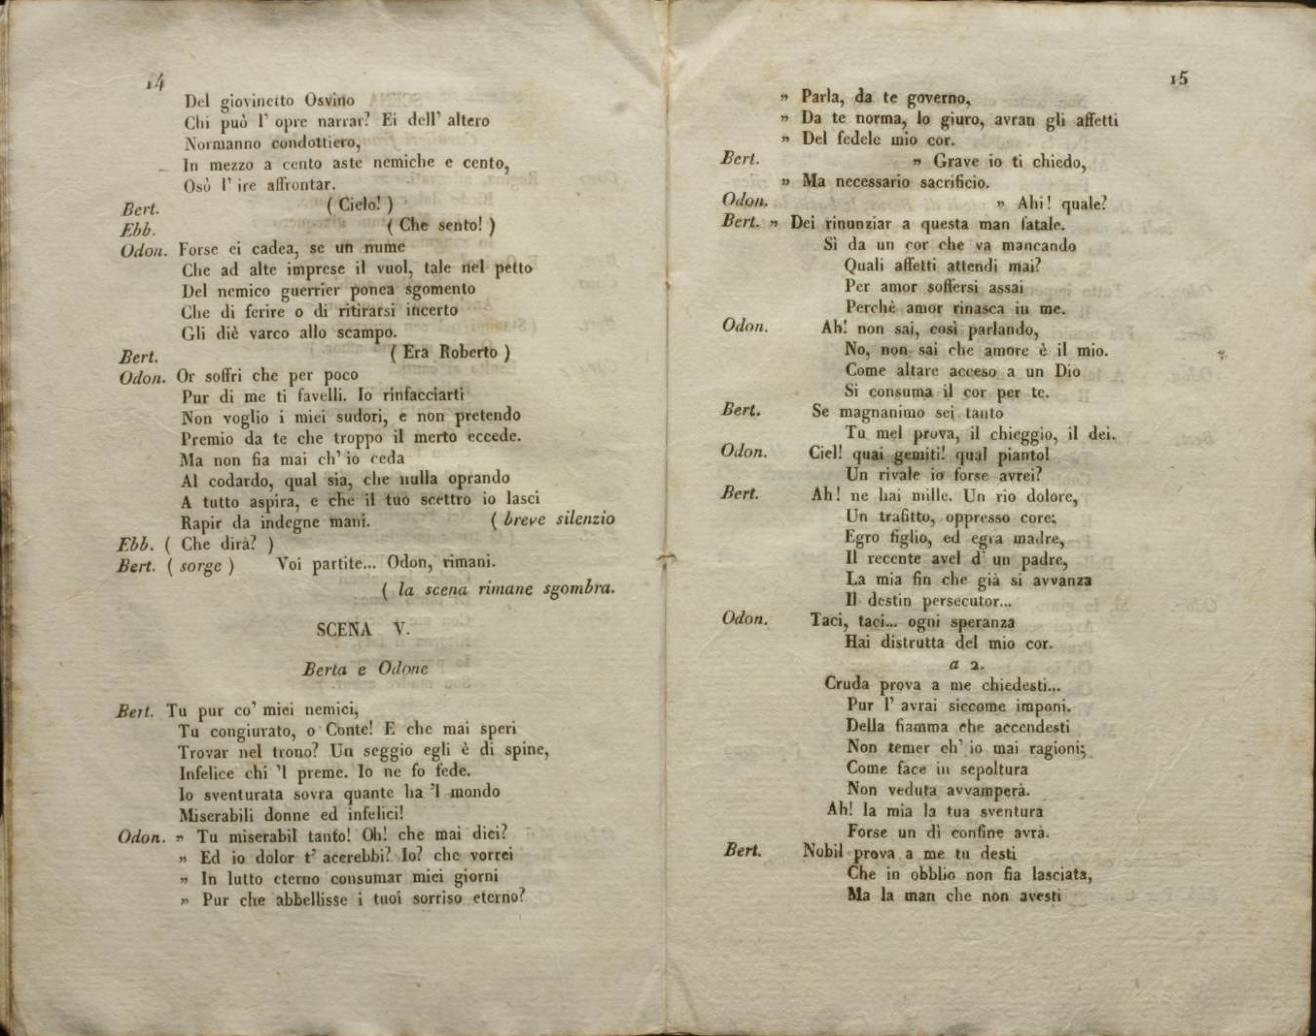 14
Del giovinetto Osvino
Chi può l' opre narrar? Ei dell' altero
Normanno condottiero,
In mezzo a cento aste nemiche e cento,
Osò l' ire affrontar.
Bert. ( Cielo! )
Ebb. ( Che sento! )
Odon. Forse ei cadea, se un nume
Che ad alte imprese il vuol, tale nel petto
Del nemico guerrier ponea sgomento
Che di ferire o di ritirarsi incerto
Gli diè varco allo scampo.
Bert. ( Era Roberto )
Odon. Or soffri che per poco
Pur di me ti favelli. Io rinfacciarti
Non voglio i miei sudori, e non pretendo
Premio da te che troppo il merto eccede.
Ma non fia mai ch' io ceda
Al codardo, qual sia, che nulla oprando
A tutto aspira, e che il tuo scettro io lasci
Rapir da indegne mani. ( breve silenzio
Ebb. ( Che dirà? )
Bert. ( sorge ) Voi partite... Odon, rimani.
( la scena rimane sgombra.
SCENA V.
Berta e Odone
Bert. Tu pur co' miei nemici,
Tu congiurato, o Conte! E che mai speri
Trovar nel trono? Un seggio egli è di spine,
Infelice chi 'l preme. Io ne fo fede.
Io sventurata sovra quante ha 'l mondo
Miserabili donne ed infelici!
Odon. " Tu miserabil tanto! Oh! che mai dici?
" Ed io dolor t' acerebbi? Io? che vorrei
" In lutto eterno consumar miei giorni
" Pur che abbellisse i tuoi sorriso eterno?
15
" Parla, da te governo,
" Da te norma, lo giuro, avran gli affetti
" Del fedele mio cor.
Bert. " Grave io ti chiedo,
" Ma necessario sacrificio.
Odon. " Ahi! quale?
Bert. " Dei rinunziar a questa man fatale.
Sì da un cor che va mancando
Quali affetti attendi mai?
Per amor soffersi assai
Perchè amor rinasca in me.
Odon. Ah! non sai, così parlando,
No, non sai che amore è il mio.
Come altare acceso a un Dio
Si consuma il cor per te.
Bert. Se magnanimo sei tanto
Tu mel prova, il chieggio, il dei.
Odon. Ciel! quai gemiti! qual pianto!
Un rivale io forse avrei?
Bert. Ah! ne hai mille. Un rio dolore,
Un trafitto, oppresso core;
Egro figlio, ed egra madre,
Il recente avel d' un padre,
La mia fin che già si avvanza
Il destin persecutor...
Odon. Taci, taci... ogni speranza
Hai distrutta del mio cor.
a 2.
Cruda prova a me chiedesti...
Pur l' avrai siccome imponi.
Della fiamma che accendesti
Non temer ch' io mai ragioni;
Come face in sepoltura
Non veduta avvamperà.
Ah! la mia la tua sventura
Forse un dì confine avrà.
Bert. Nobil prova a me tu desti
Che in obblio non fia lasciata,
Ma la man che non avesti